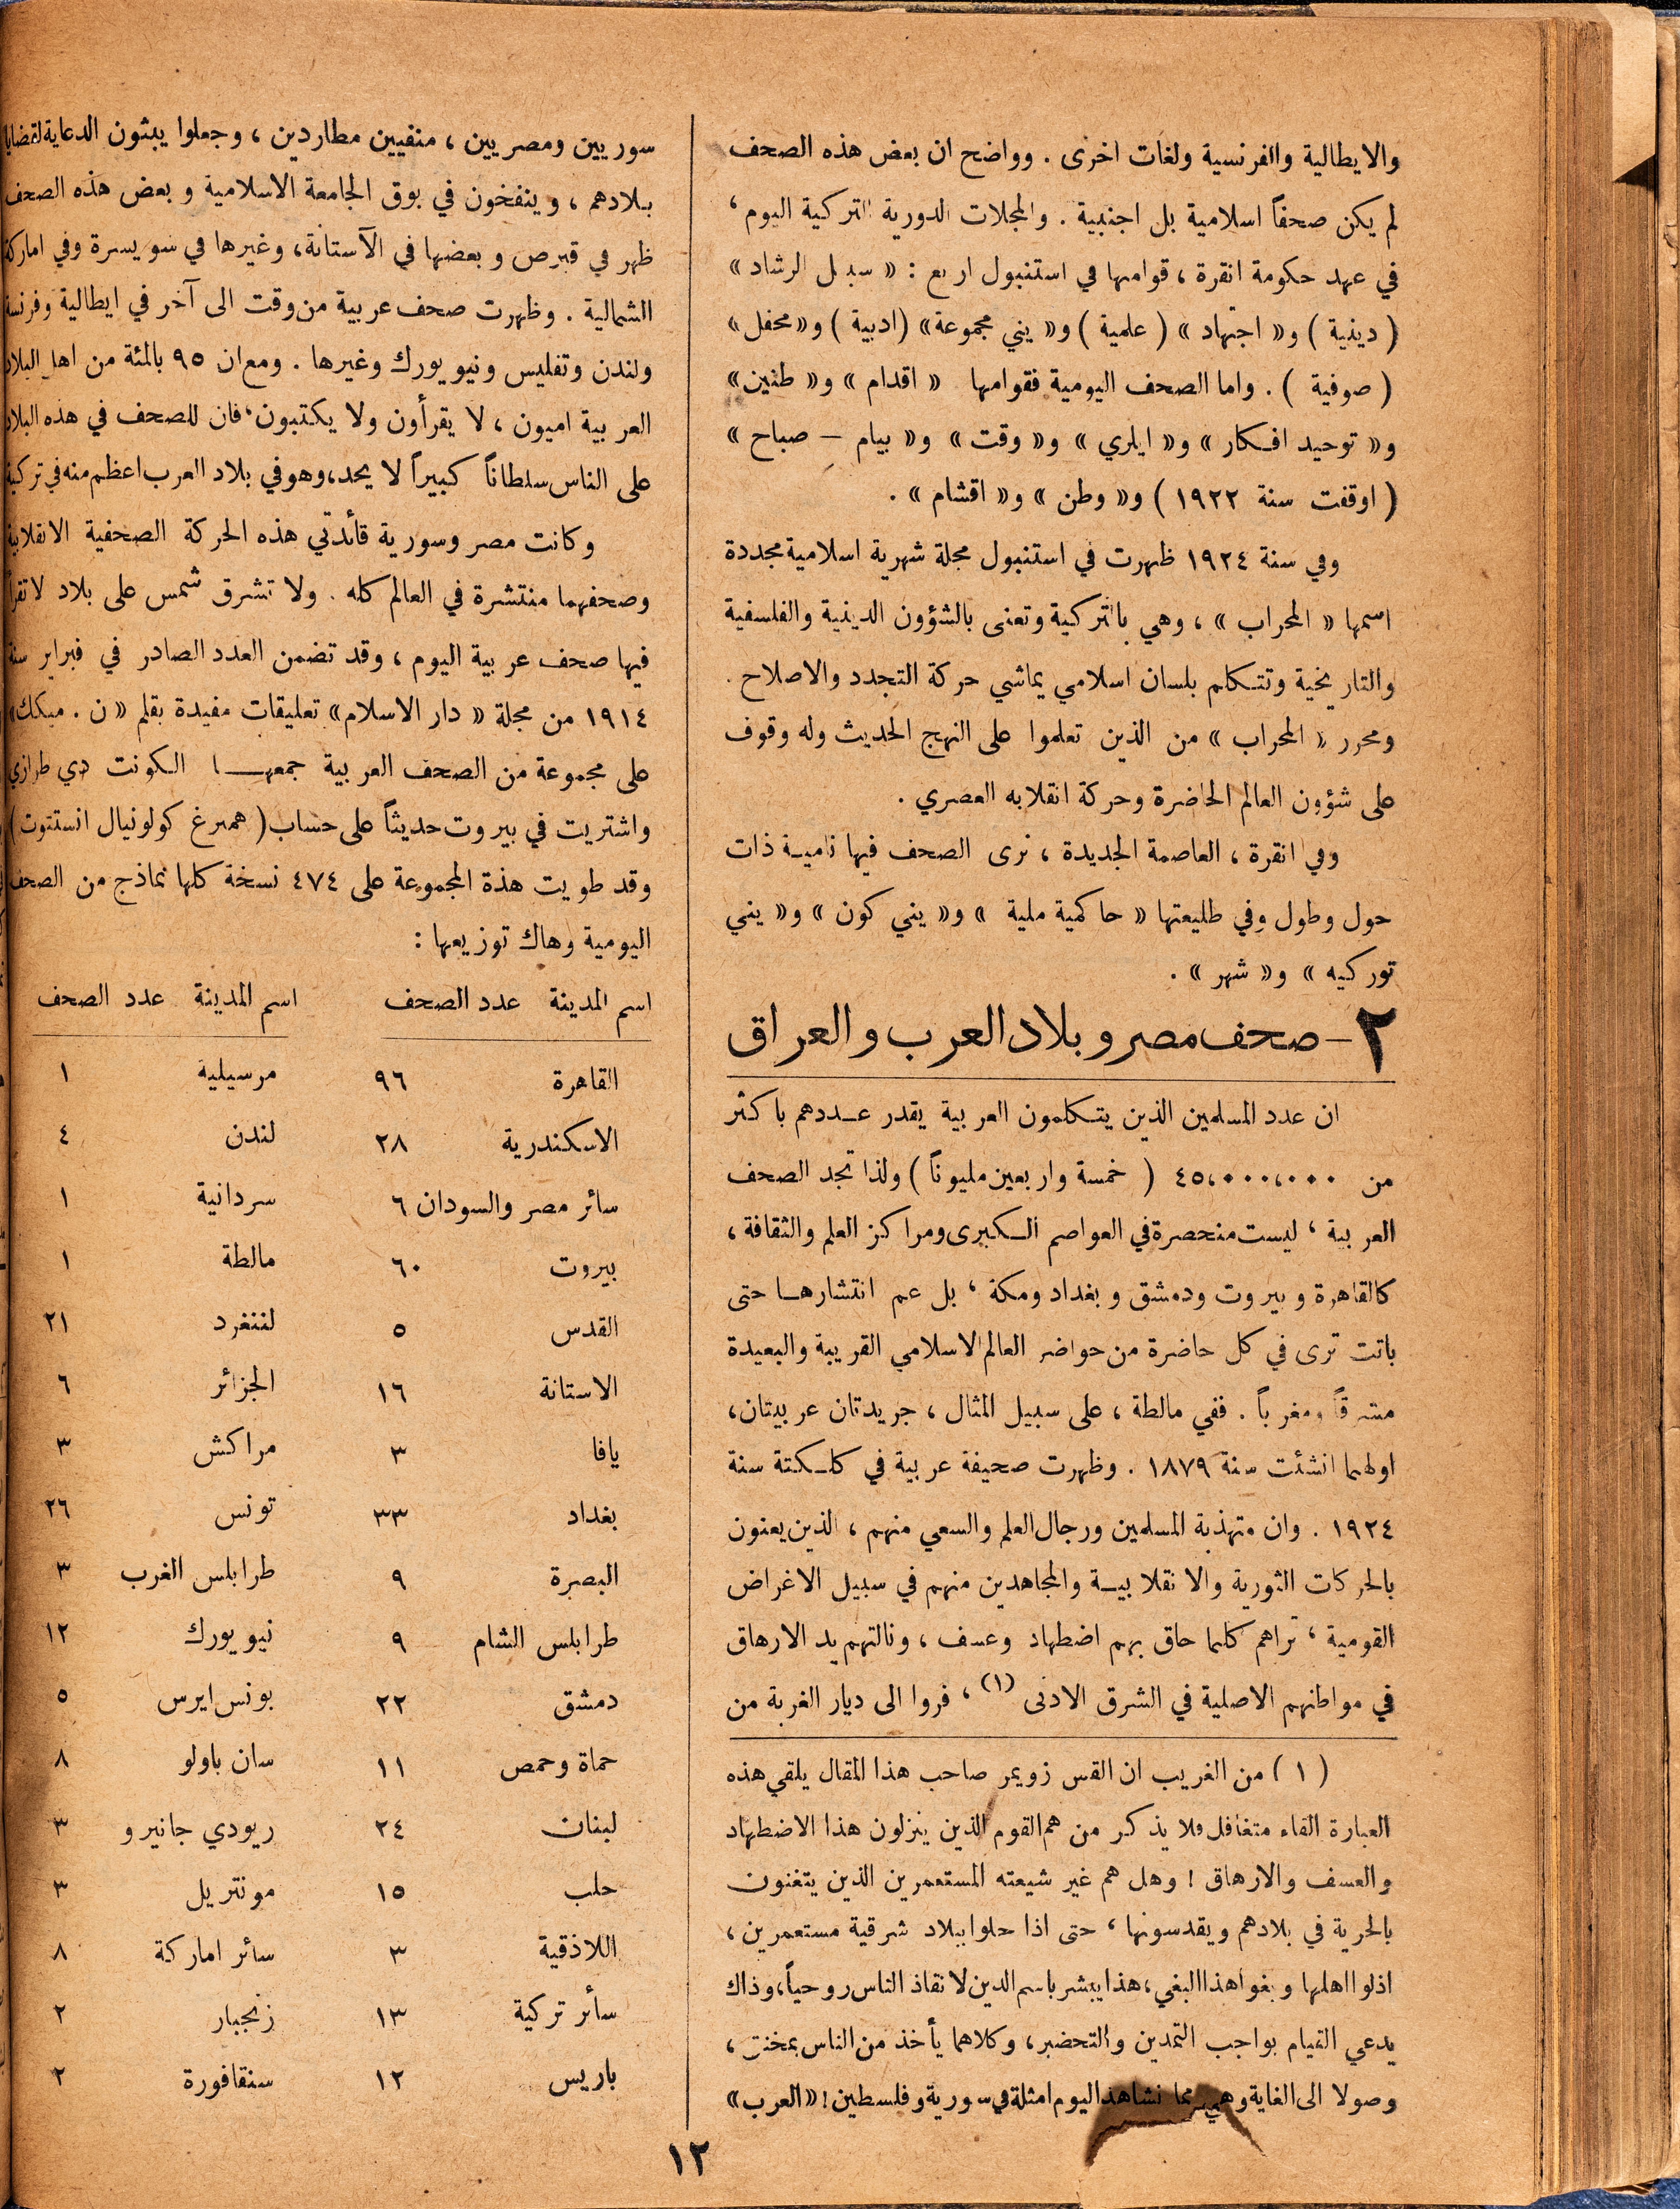 والايطالية والفرنسية ولغات اخرى . وواضح ان بعض هذه الصحف
لم يكن صحفاً اسلامية بل اجنبية . والمجلات الدورية التركية اليوم ،
في عهد حكومة انقرة ، قوامها في استنبول اربع : « سبيل الرشاد »
( دينية ) و« اجتهاد » ( علمية ) و« يني مجموعة» (ادبية ) و«محفل»
( صوفية ) . واما الصحف اليومية فقوامها « اقدام » و« طنين»
و« توحيد افكار » و« ايلري » و« وقت » و« بيام – صباح »
( اوقفت سنة ١٩٢٢ ) و« وطن » و« اقشام » .
وفي سنة ١٩٢٤ ظهرت في استنبول مجلة شهرية اسلامية مجددة
اسمها « المحراب » ، وهي بالتركية وتعنى بالشؤون الدينية والفلسفية
والتاريخية وتتكلم بلسان اسلامي يماشي حركة التجدد والاصلاح .
ومحرر « المحراب » من الذين تعلموا على النهج الحديث وله وقوف
على شؤون العالم الحاضرة وحركة انقلابه العصري .
وفي انقرة ، العاصمة الجديدة ، نرى الصحف فيها نامية ذات
حول وطول وفي طليعتها « حاكمية ملية » و« يني كون » و« يني
توركيه » و« شهر » .
٢ – صحف مصر وبلاد العرب والعراق
ان عدد المسلمين الذين يتكلمون العربية يقدر عددهم باكثر
من ٤٥،٠٠٠،٠٠٠ ( خمسة واربعين مليوناً ) ولذا تجد الصحف
العربية ، ليست منحصرة في العواصم الكبرى ومراكز العلم والثقافة ،
كالقاهرة وبيروت ودمشق وبغداد ومكة ، بل عم انتشارها حتى
باتت ترى في كل حاضرة من حواضر العالم الاسلامي القريبة والبعيدة
مشرقاً ومغرباً . ففي مالطة ، على سبيل المثال ، جريدتان عربيتان ،
اولهما انشئت سنة ١٨٧٩ . وظهرت صحيفة عربية في كلكتة سنة
١٩٢٤ . وان متهذبة المسلمين ورجال العلم والسعي منهم ، الذين يعنون
بالحركات الثورية والانقلابية والمجاهدين منهم في سبيل الاغراض
القومية ، تراهم كلما حاق بهم اضطهاد وعسف ، ونالتهم يد الارهاق
في مواطنهم الاصلية في الشرق الادنى (١) ، فروا الى ديار الغربة من
( ١ ) من الغريب ان القس زويمر صاحب هذا المقال يلقي هذه
العبارة القاء متغافل فلا يذكر من هم القوم الذين ينزلون هذا الاضطهاد
والعسف والارهاق ! وهل هم غير شيعته المستعمرين الذين يتغنون
بالحرية في بلادهم ويقدسونها ، حتى اذا حلوا ببلاد شرقية مستعمرين ،
اذلوا اهلها وبغوا هذا البغي ، هذا يبشر باسم الدين لانقاذ الناس روحياً ، وذاك
يدعي القيام بواجب التمدين والتحضير ، وكلاهما يأخذ من الناس بمخنق ،
وصولا الى الغاية وهي مما نشاهد اليوم امثلة في سورية وفلسطين ! « العرب »
سوريين ومصريين ، منفيين مطاردين ، وجعلوا يبثون الدعاية لقضايا
بلادهم ، وينفخون في بوق الجامعة الاسلامية وبعض هذه الصحف
ظهر في قبرص وبعضها في الآستانة ، وغيرها في سويسرة وفي اماركة
الشمالية . وظهرت صحف عربية من وقت الى آخر في ايطالية وفرنسة
ولندن وتفليس ونيويورك وغيرها . ومع ان ٩٥ بالمئة من اهل البلاد
العربية اميون ، لا يقرأون ولا يكتبون ، فان للصحف في هذه البلاد
على الناس سلطاناً كبيراً لا يحد ، وهو في بلاد العرب اعظم منه في تركية
وكانت مصر وسورية قائدتي هذه الحركة الصحفية الانقلابية
وصحفهما منتشرة في العالم كله . ولا تشرق شمس على بلاد لا تقرأ
فيها صحف عربية اليوم ، وقد تضمن العدد الصادر في فبراير سنة
١٩١٤ من مجلة « دار الاسلام » تعليقات مفيدة بقلم « ن . ميكك »
على مجموعة من الصحف العربية جمعها الكونت دي طرازي
واشتريت في بيروت حديثاً على حساب ( همبرغ كولونيال انستتوت )
وقد طويت هذة المجموعة على ٤٧٤ نسخة كلها نماذج من الصحف
اليومية وهاك توزيعها :
اسم المدينة عدد الصحف
القاهرة ٩٦
الاسكندرية ٢٨
سائر مصر والسودان ٦
بيروت ٦٠
القدس ٥
الاستانة ١٦
يافا ٣
بغداد ٣٣
البصرة ٩
طرابلس الشام ٩
دمشق ٢٢
حماة وحمص ١١
لبنان ٢٤
حلب ١٥
اللاذقية ٣
سائر تركية ١٣
باريس ١٢
اسم المدينة عدد الصحف
مرسيلية ١
لندن ٤
سردانية ١
مالطة ١
لننغرد ٢١
الجزائر ٦
مراكش ٣
تونس ٢٦
طرابلس الغرب ٣
نيويورك ١٢
بونس ايرس ٥
سان باولو ٨
ريودي جانيرو ٣
مونتريل ٣
سائر اماركة ٨
زنجبار ٢
سنقافورة ٢
١٢